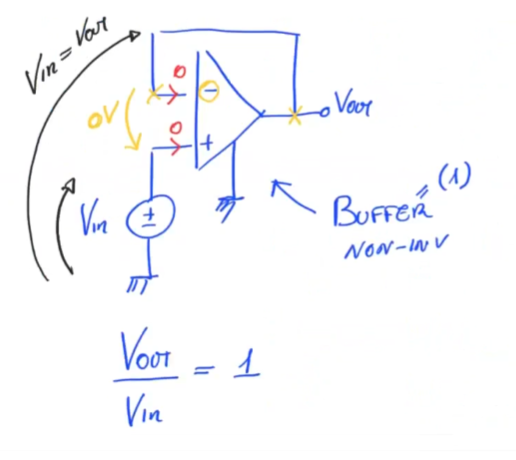 Vin = Vout
0
−
Vout
0V
0
+
Vin
±
BUFFER" (1)
NON-INV
Vout
Vin
= 1